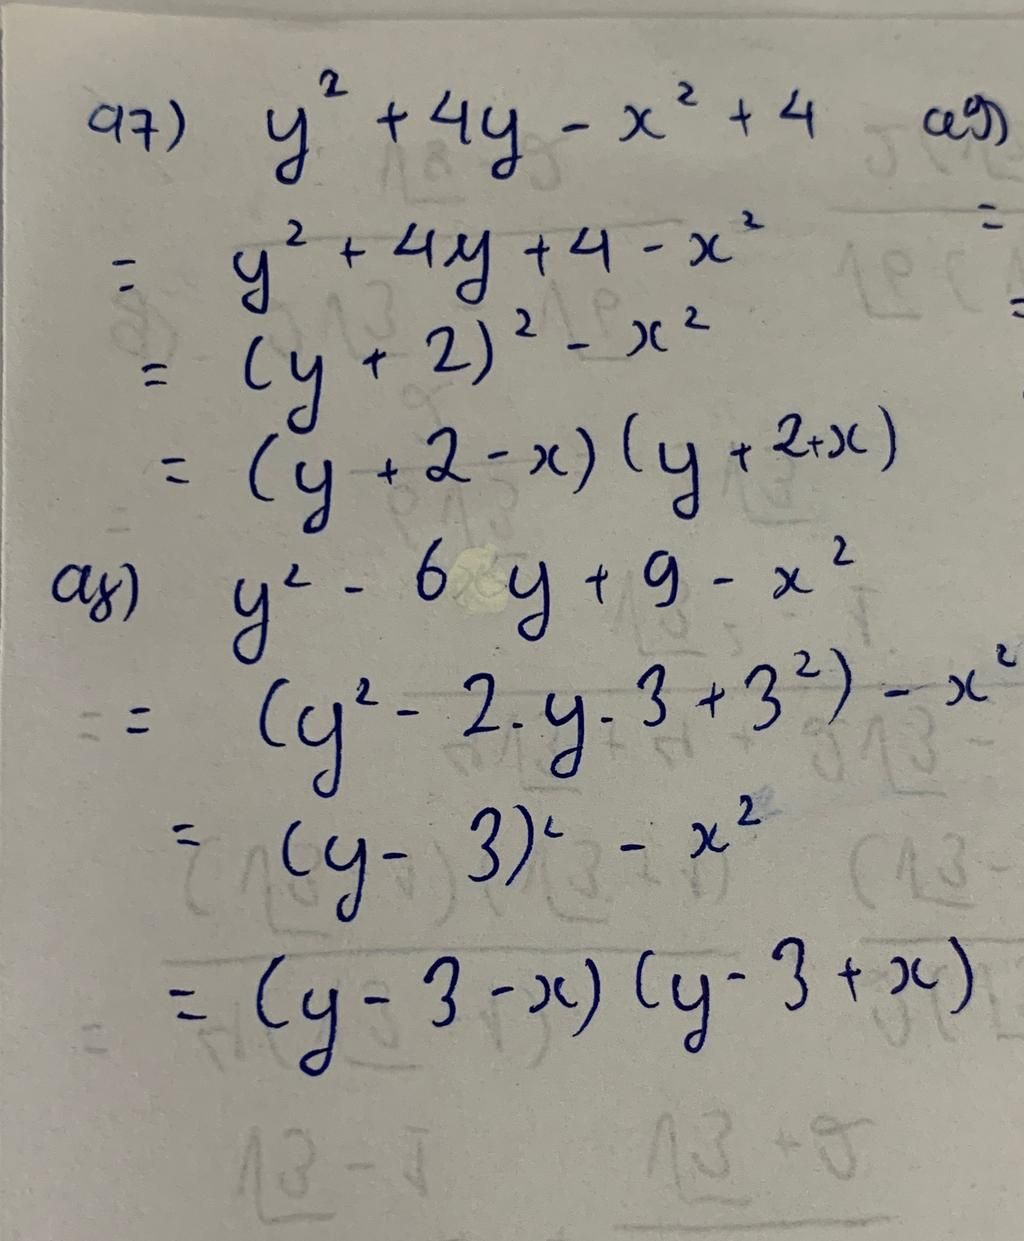 a7) y² + 4y - x² + 4
= y² + 4y + 4 - x²
= (y + 2)² - x²
= (y + 2 - x) (y + 2 + x)
a8) y² - 6y + 9 - x²
= (y² - 2. y. 3 + 3²) - x²
= (y - 3)² - x²
= (y - 3 - x) (y - 3 + x)
a9)
=
=